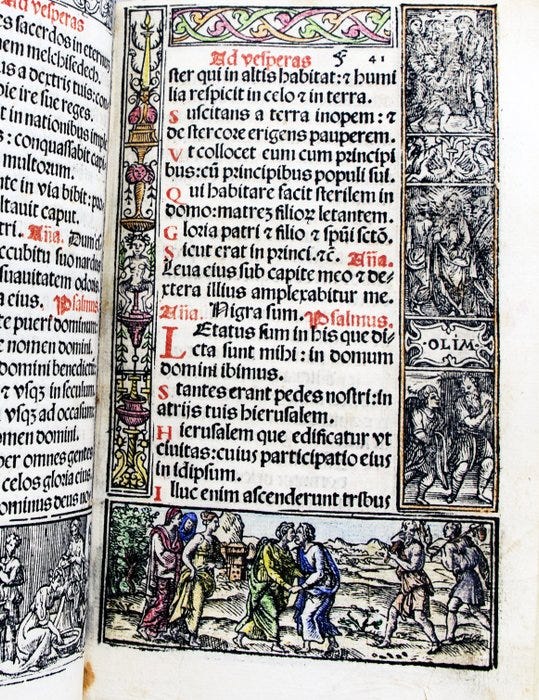 Ad vesperas
s sacerdos in eternum
nem melchisedech.
us a dextris tuis: con
die ire sue reges.
t in nationibus imple
: conquassabit capi
multorum.
nte in via bibit: pro
ltavit caput.
tri. Aña. Dum e
ccubitu suo nardus
suavitatem odoris
a eius. Psalmus
te pueri dominum
e nomen domini.
domini benedictu
⁊ vsqꝫ in seculum.
vsqꝫ ad occasum
omen domini.
per omnes gentes
celos gloria eius.
ominus deus no
Ad vesperas 41
ster qui in altis habitat:⁊ humi
lia respicit in celo ⁊ in terra.
Suscitans a terra inopem: ⁊
de stercore erigens pauperem.
Vt collocet eum cum principi
bus:cũ principibus populi sui.
Qui habitare facit sterilem in
domo:matreʒ filioꝝ letantem.
Gloria patri ⁊ filio ⁊ spũi sctõ.
Sicut erat in princi.⁊č. Aña.
Leua eius sub capite meo ⁊ de-
xtera illius amplexabitur me.
Aña. Nigra sum. Psalmus.
LEtatus sum in his que di-
cta sunt mihi: in domum
domini ibimus.
Stantes erant pedes nostri:in
atrijs tuis hierusalem.
Hierusalem que edificatur vt
ciuitas:cuius participatio eius
in idipsum.
Illuc enim ascenderunt tribus
·OLIM·